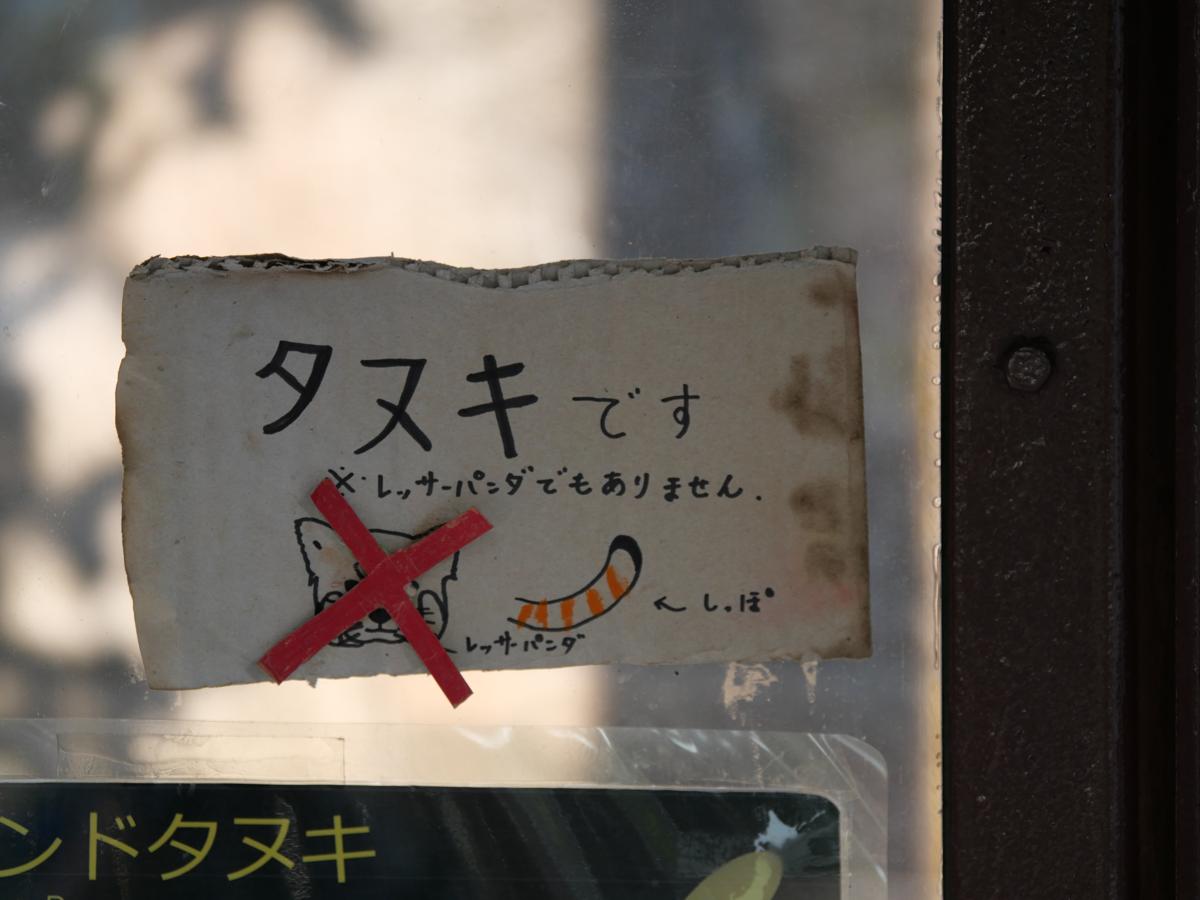 タヌキです
※レッサーパンダでもありません.
←しっぽ
レッサーパンダ
ンドタヌキ